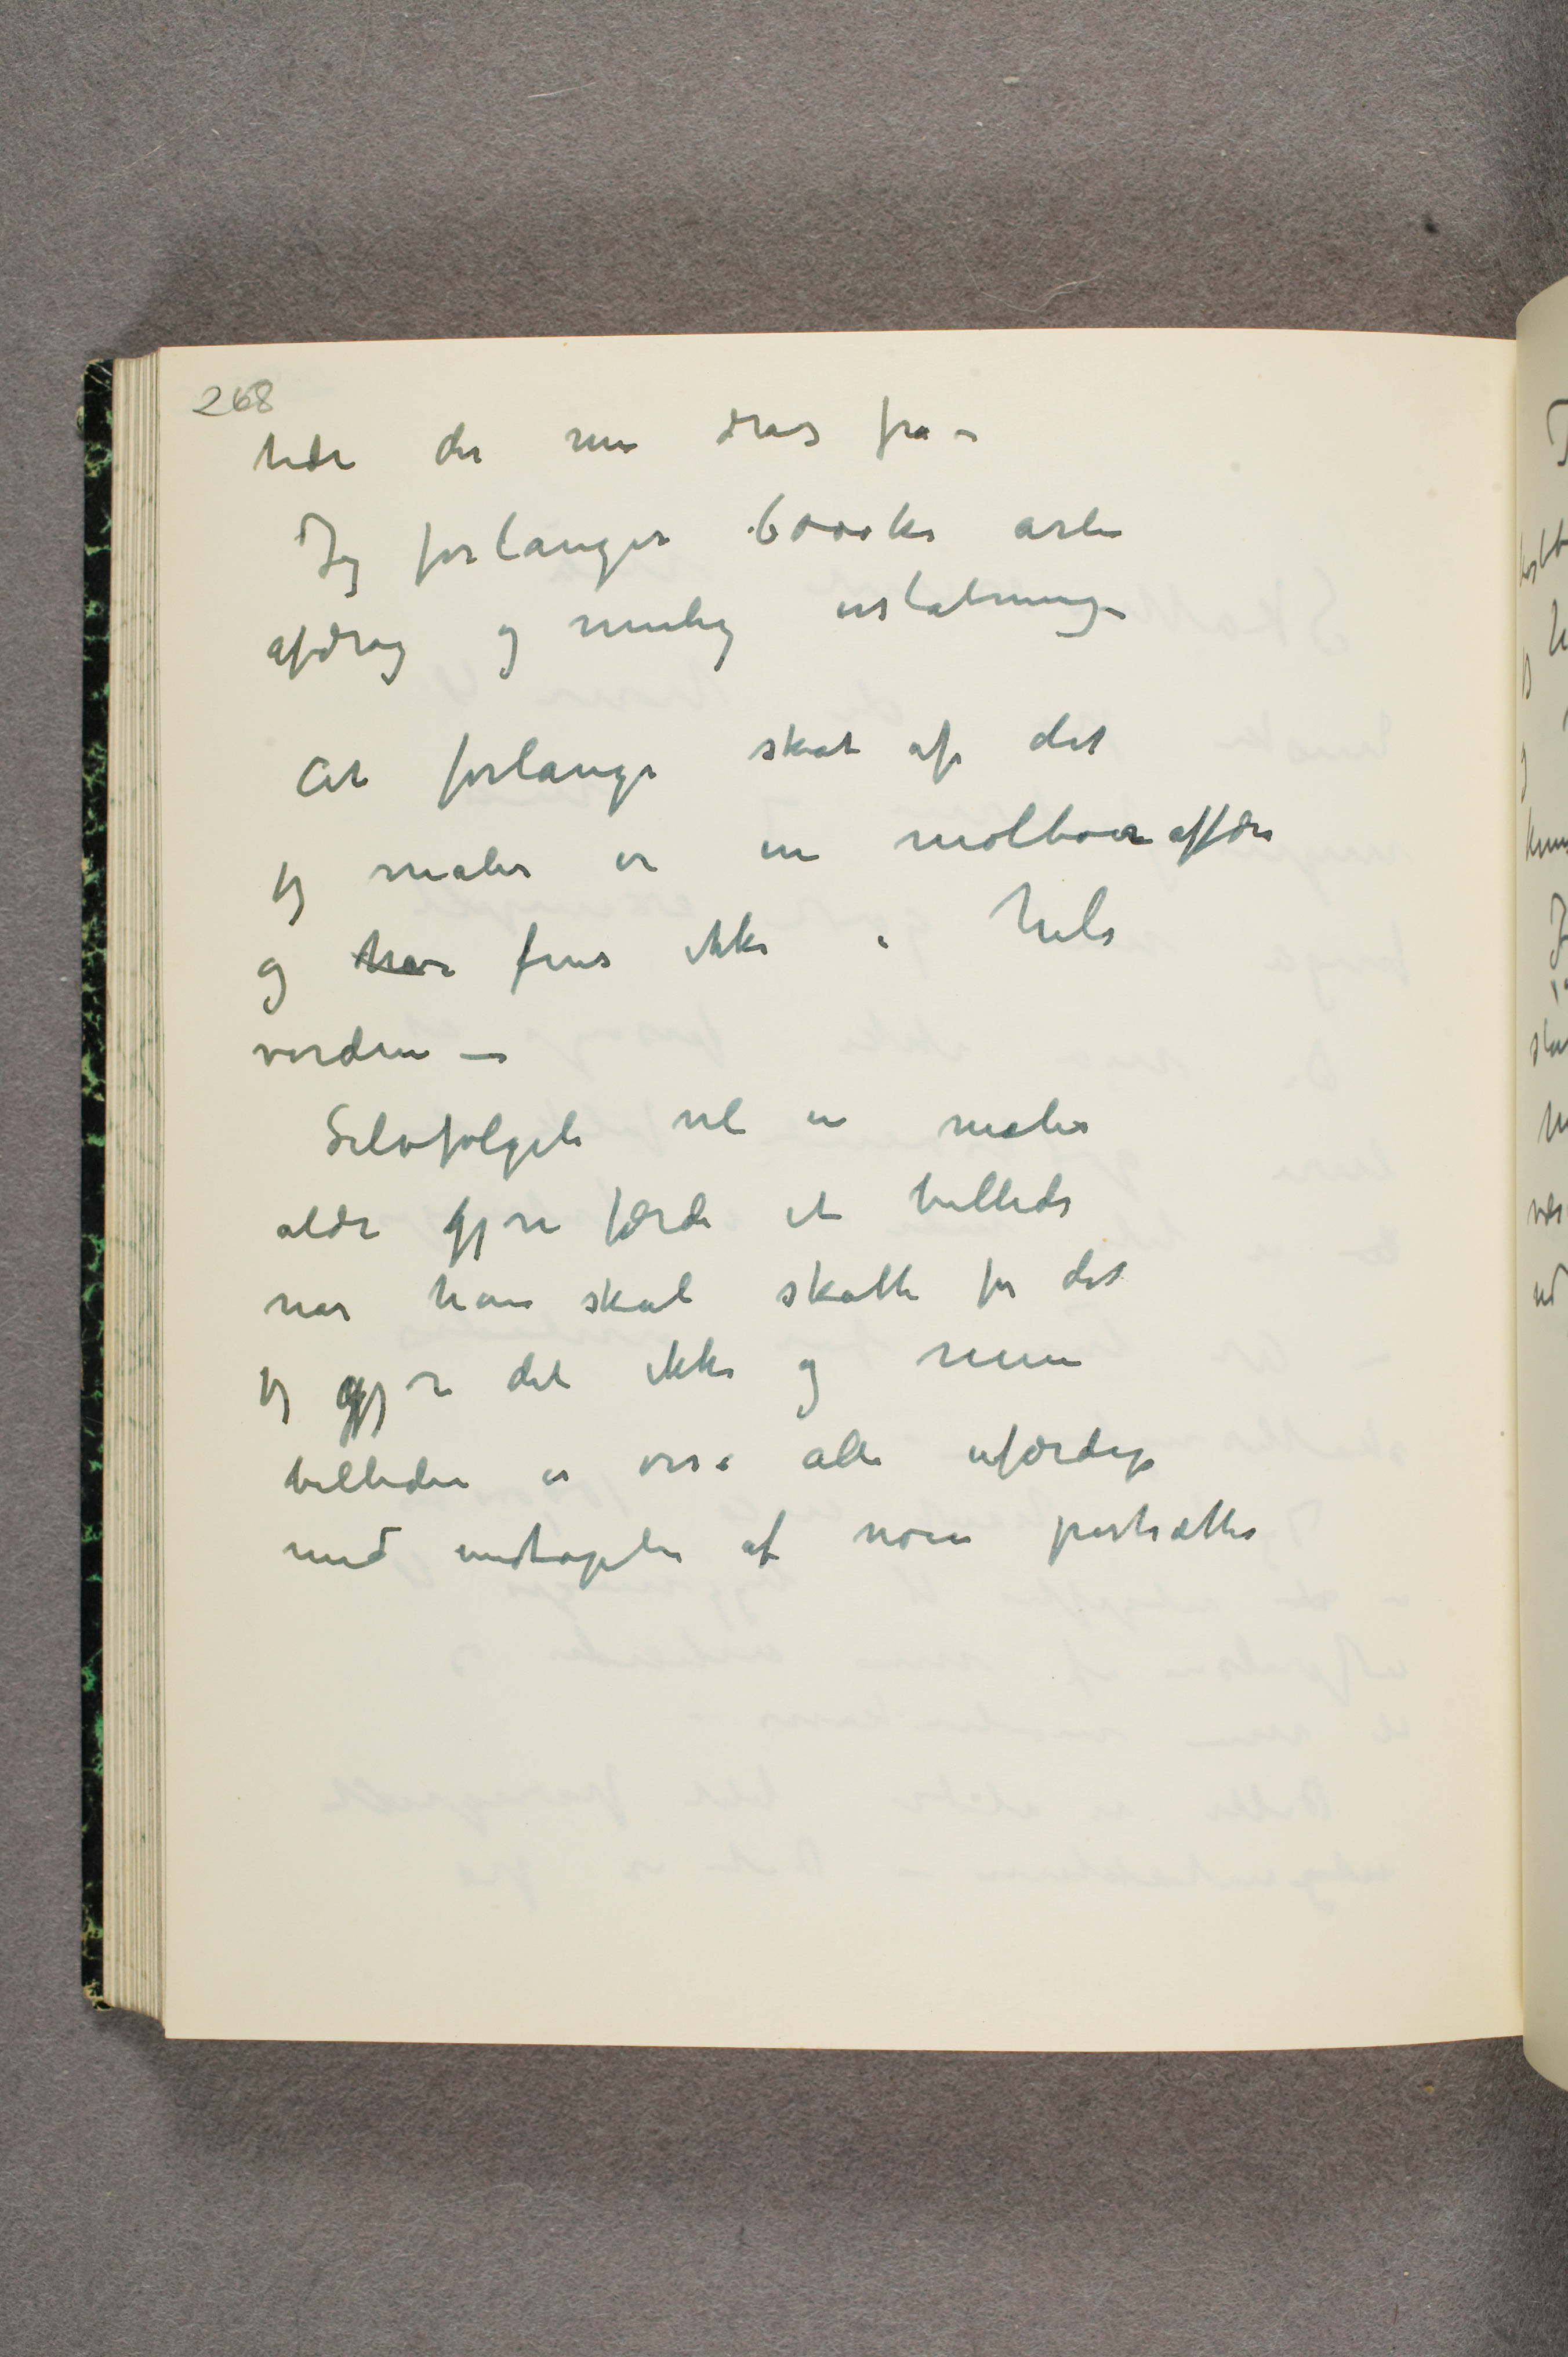 268
tider der må dras fra –
Jeg forlanger 6000 kr årli
afdrag og mulig erstatning –
At forlange skat af det
jeg maler er en molboeraffære
og har fins ikke i hele
verden –
Selvfølgeli vil en maler
aldri gjøre færdi et billede
når han skal skatte for det
jeg gjør det ikke og mine
billeder er osså alle ufærdige
med undtagelse af nogen portrætter